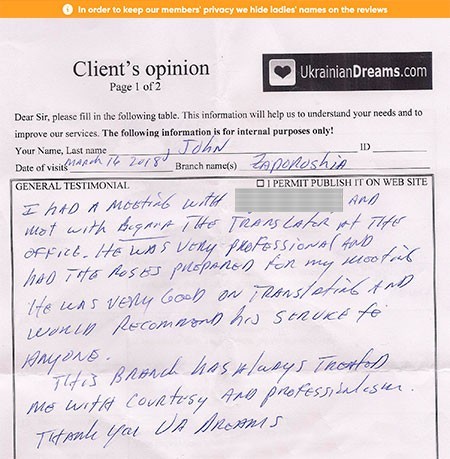 In order to keep our members' privacy we hide ladies' names on the reviews
Client's opinion
Page 1 of 2
UkrainianDreams.com
Dear Sir, please fill in the following table. This information will help us to understand your needs and to
improve our services. The following information is for internal purposes only!
Your Name, Last name John ID
Date of visits March 16 2018 Branch name(s) ZAPOROSHIA
GENERAL TESTIMONIAL ☐ I PERMIT PUBLISH IT ON WEB SITE
I HAD A MEETING WITH AND
MET WITH THE TRANSLATER AT THE
OFFICE. HE WAS VERY PROFESSIONAL AND
HAD THE ROSES PREPARED FOR MY MEETING
HE WAS VERY GOOD ON TRANSLATING AND
WOULD RECOMMEND his SERVICE TO
ANYONE.
THIS BRANCH HAS ALWAYS TREATED
ME WITH COURTESY AND PROFESSIONALISM.
THANK YOU UA DREAMS